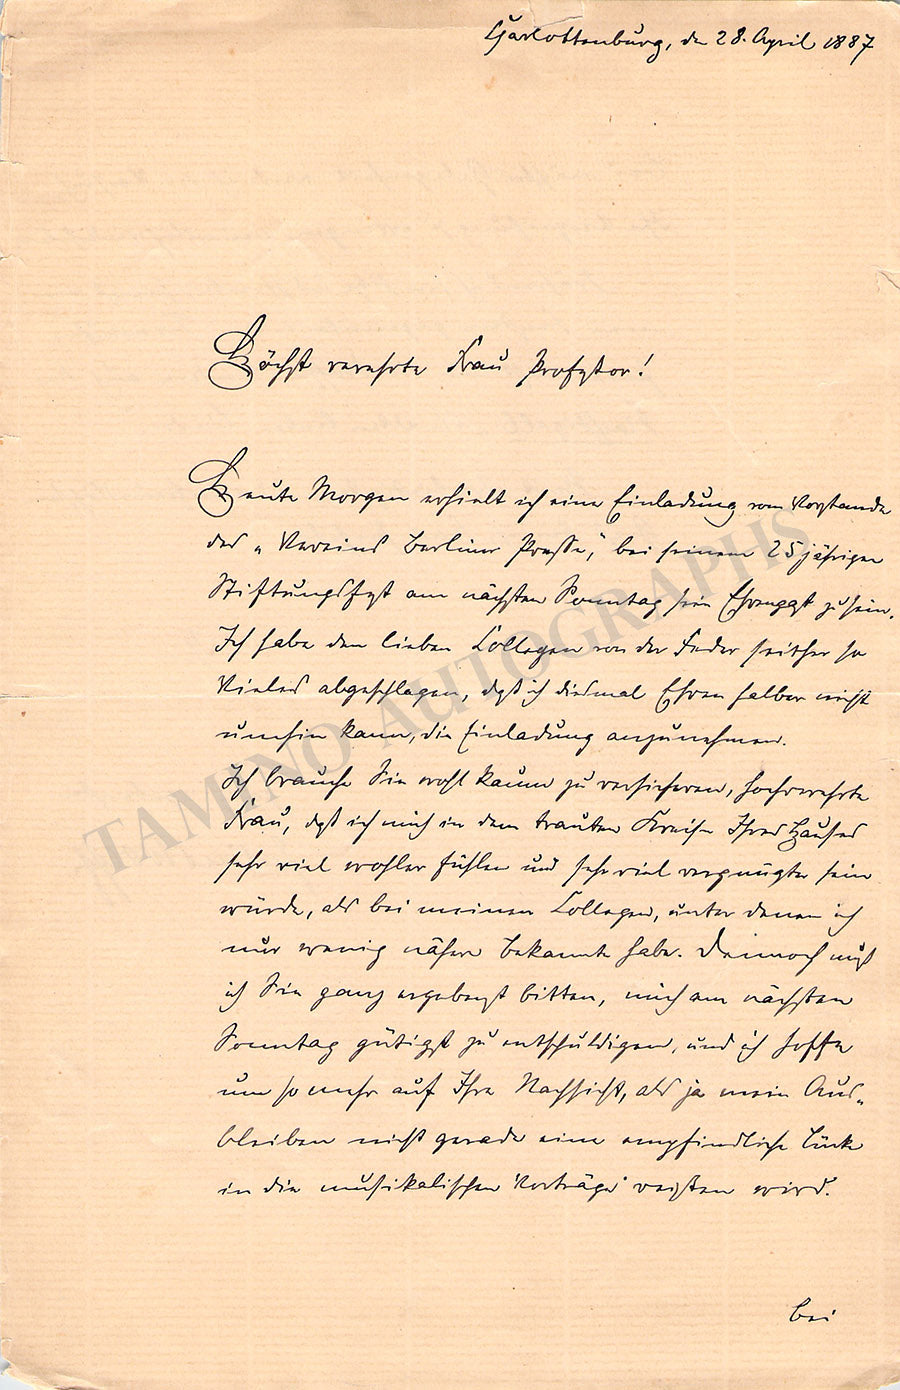 Charlottenburg, den 28. April 1887
Höchst verehrte Frau Professor!
Heute Morgen erhielt ich eine Einladung vom Vorstande
des „Vereins Berliner Presse", bei seinem 25jährigen
Stiftungsfest am nächsten Sonntag sein Ehrengast zu sein.
Ich habe den lieben Collegen von der Feder seither so
Vieles abgeschlagen, daß ich diesmal Ehren halber nicht
umhin kann, die Einladung anzunehmen.
Ich brauche Sie wohl kaum zu versichern, hochverehrte
Frau, daß ich mich in dem trauten Kreise Ihres Hauses
sehr viel wohler fühlen und sehr viel vergnügter sein
würde, als bei meinen Collegen, unter denen ich
nur wenig nähere Bekannte habe. Dennoch muß
ich Sie ganz ergebenst bitten, mich am nächsten
Sonntag gütigst zu entschuldigen, und ich hoffe
um so mehr auf Ihre Nachsicht, als ja mein Aus-
bleiben nicht gerade eine empfindliche Lücke
in die musikalischen Vorträge reißen wird.
bei
TAMINO AUTOGRAPHS